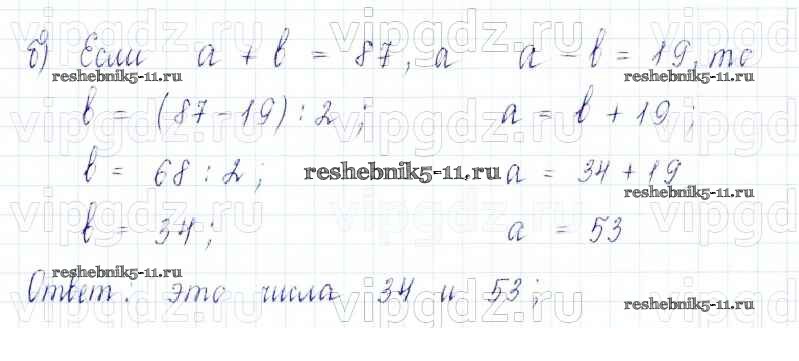 vipgdz.ru vipgdz.ru vipgdz.ru
б) Если a + b = 87, а a - b = 19, то
reshebnik5-11.ru reshebnik5-11.ru
b = (87 - 19) : 2; a = b + 19;
vipgdz.ru vipgdz.ru vipgdz.ru
b = 68 : 2; reshebnik5-11.ru a = 34 + 19
reshebnik5-11.ru
vipgdz.ru vipgdz.ru vipgdz.ru
b = 34; a = 53
reshebnik5-11.ru
Ответ: это числа 34 и 53;
reshebnik5-11.ru
vipgdz.ru vipgdz.ru vipgdz.ru